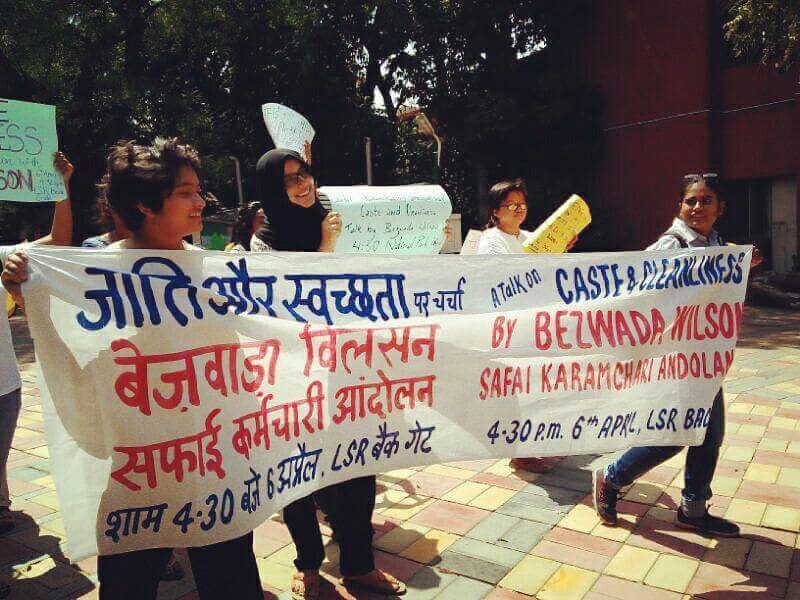 जाति और स्वच्छता पर चर्चा
बेज़वाड़ा विलसन
सफाई कर्मचारी आंदोलन
शाम 4.30 बजे 6 अप्रैल, LSR बैक गेट
A TALK ON CASTE & CLEANLINESS
BY BEZWADA WILSON
SAFAI KARAMCHARI ANDOLAN
4.30 P.M. 6TH APRIL, LSR BAC
Caste and Cleanliness
Talk by Bezwada Wilson
4:30
ESS
SON